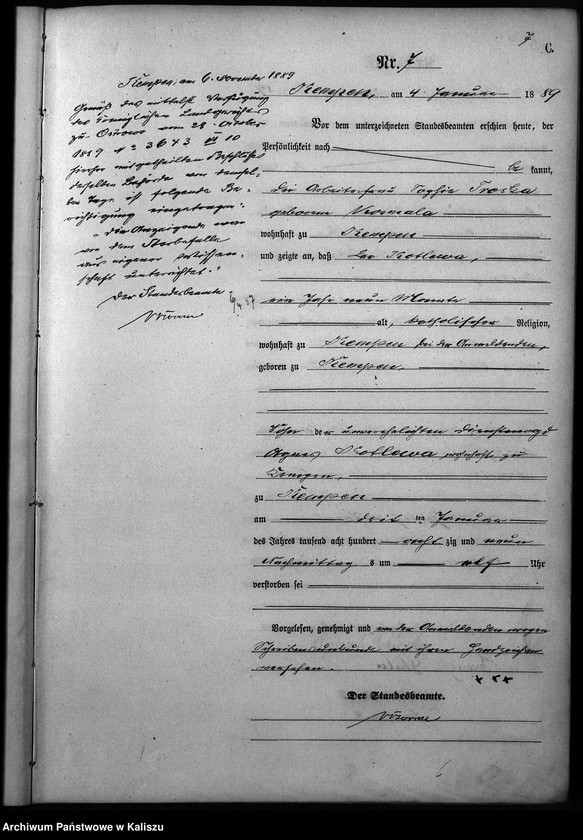 7
C.
Nr. 7
Kempen, am 4. Januar 1889
Vor dem unterzeichneten Standesbeamten erschien heute, der
Persönlichkeit nach
be kannt,
die Arbeiterfrau Sophie Troska
geborene
wohnhaft zu Kempen
und zeigte an, daß Leo Kotlewa,
ein Jahr neun Monate
alt, katholischer Religion,
wohnhaft zu Kempen bei der Anmeldenden,
geboren zu Kempen,
Sohn der unverehelichten Dienstmagd
Agnes Kotlewa wohnhaft zu
Kempen,
zu Kempen
am drei ten Januar
des Jahres tausend acht hundert acht zig und neun
Nachmittag s um elf Uhr
verstorben sei
Vorgelesen, genehmigt und von der Anmeldenden wegen
Schreibensunkunde mit ihrem Handzeichen
versehen.
+++
Der Standesbeamte.
Kempen, am 6. November 1889
Gemäß des mittelst Verfügung
des Königlichen Landgerichts
zu Ostrowo vom 28. October
1889 No 3643 III 10
hierher mitgetheilten Beschlusses
derselben Behörde von demsel-
ben Tage ist folgende Be-
richtigung eingetragen:
"die Anzeigende war
von dem Sterbefalle
aus eigener Wissen-
schaft unterrichtet."
Der Standesbeamte
Archiwum Państwowe w Kaliszu